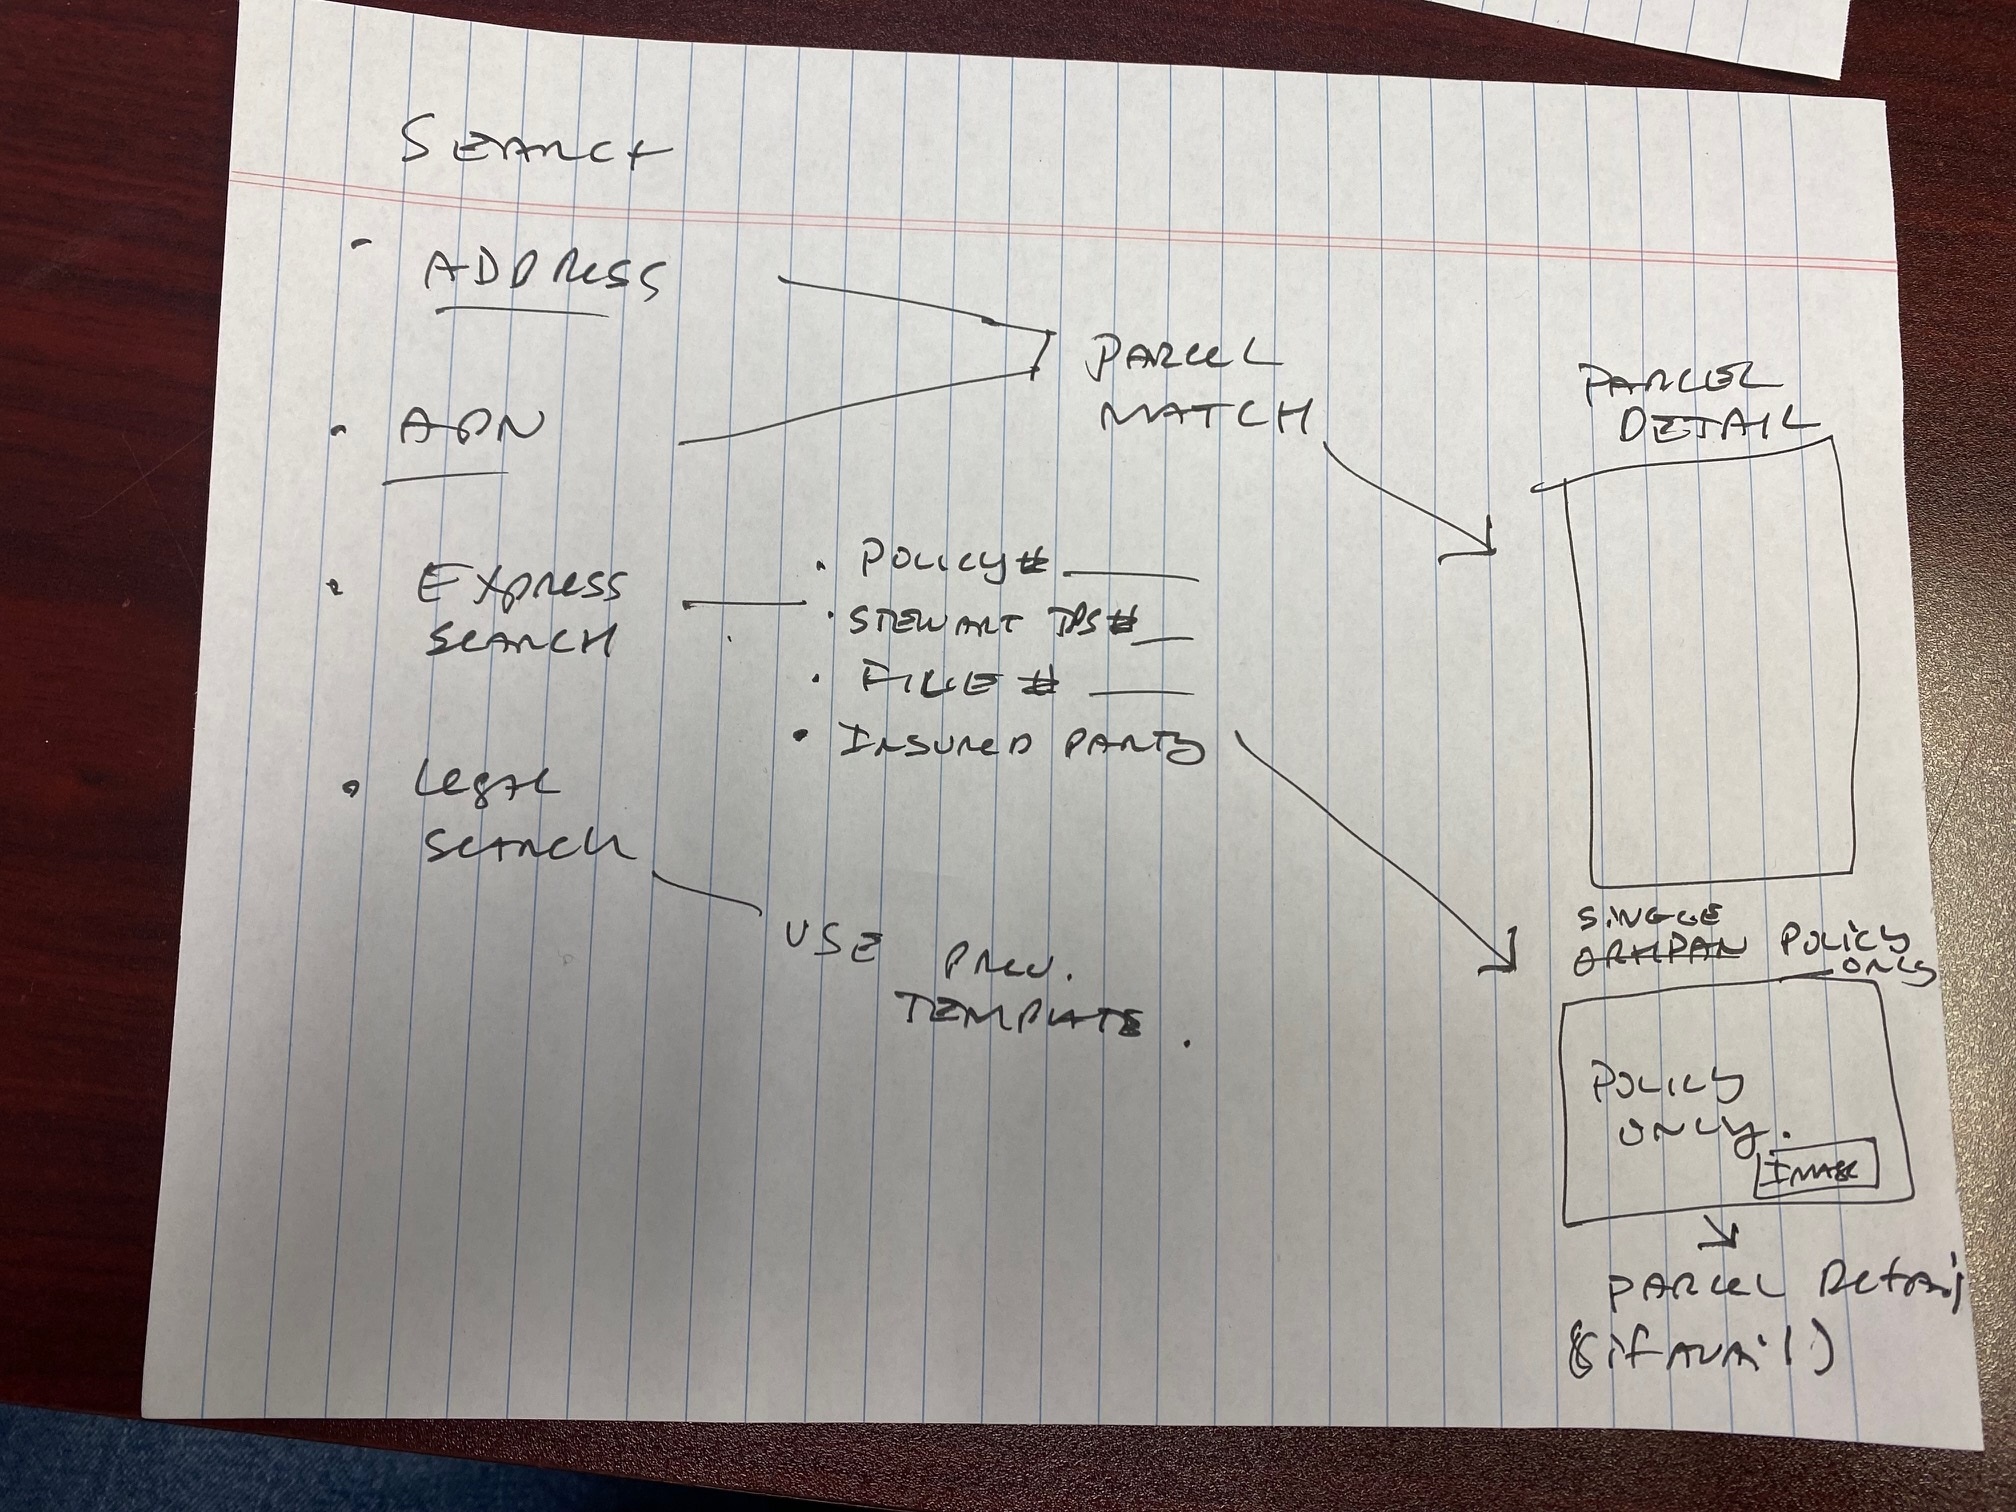 SEARCH
- ADDRESS
• APN
• EXPRESS
SEARCH
• Legal
SEARCH
PARCEL
MATCH
• POLICY# ____
• STEWART #__
• FILE # ___
• INSURED PARTY
USE PREV.
TEMPLATE.
PARCEL
DETAIL
SINGLE
POLICY
ONLY
POLICY
ONLY.
IMAGE
PARCEL Detail
(if avail)